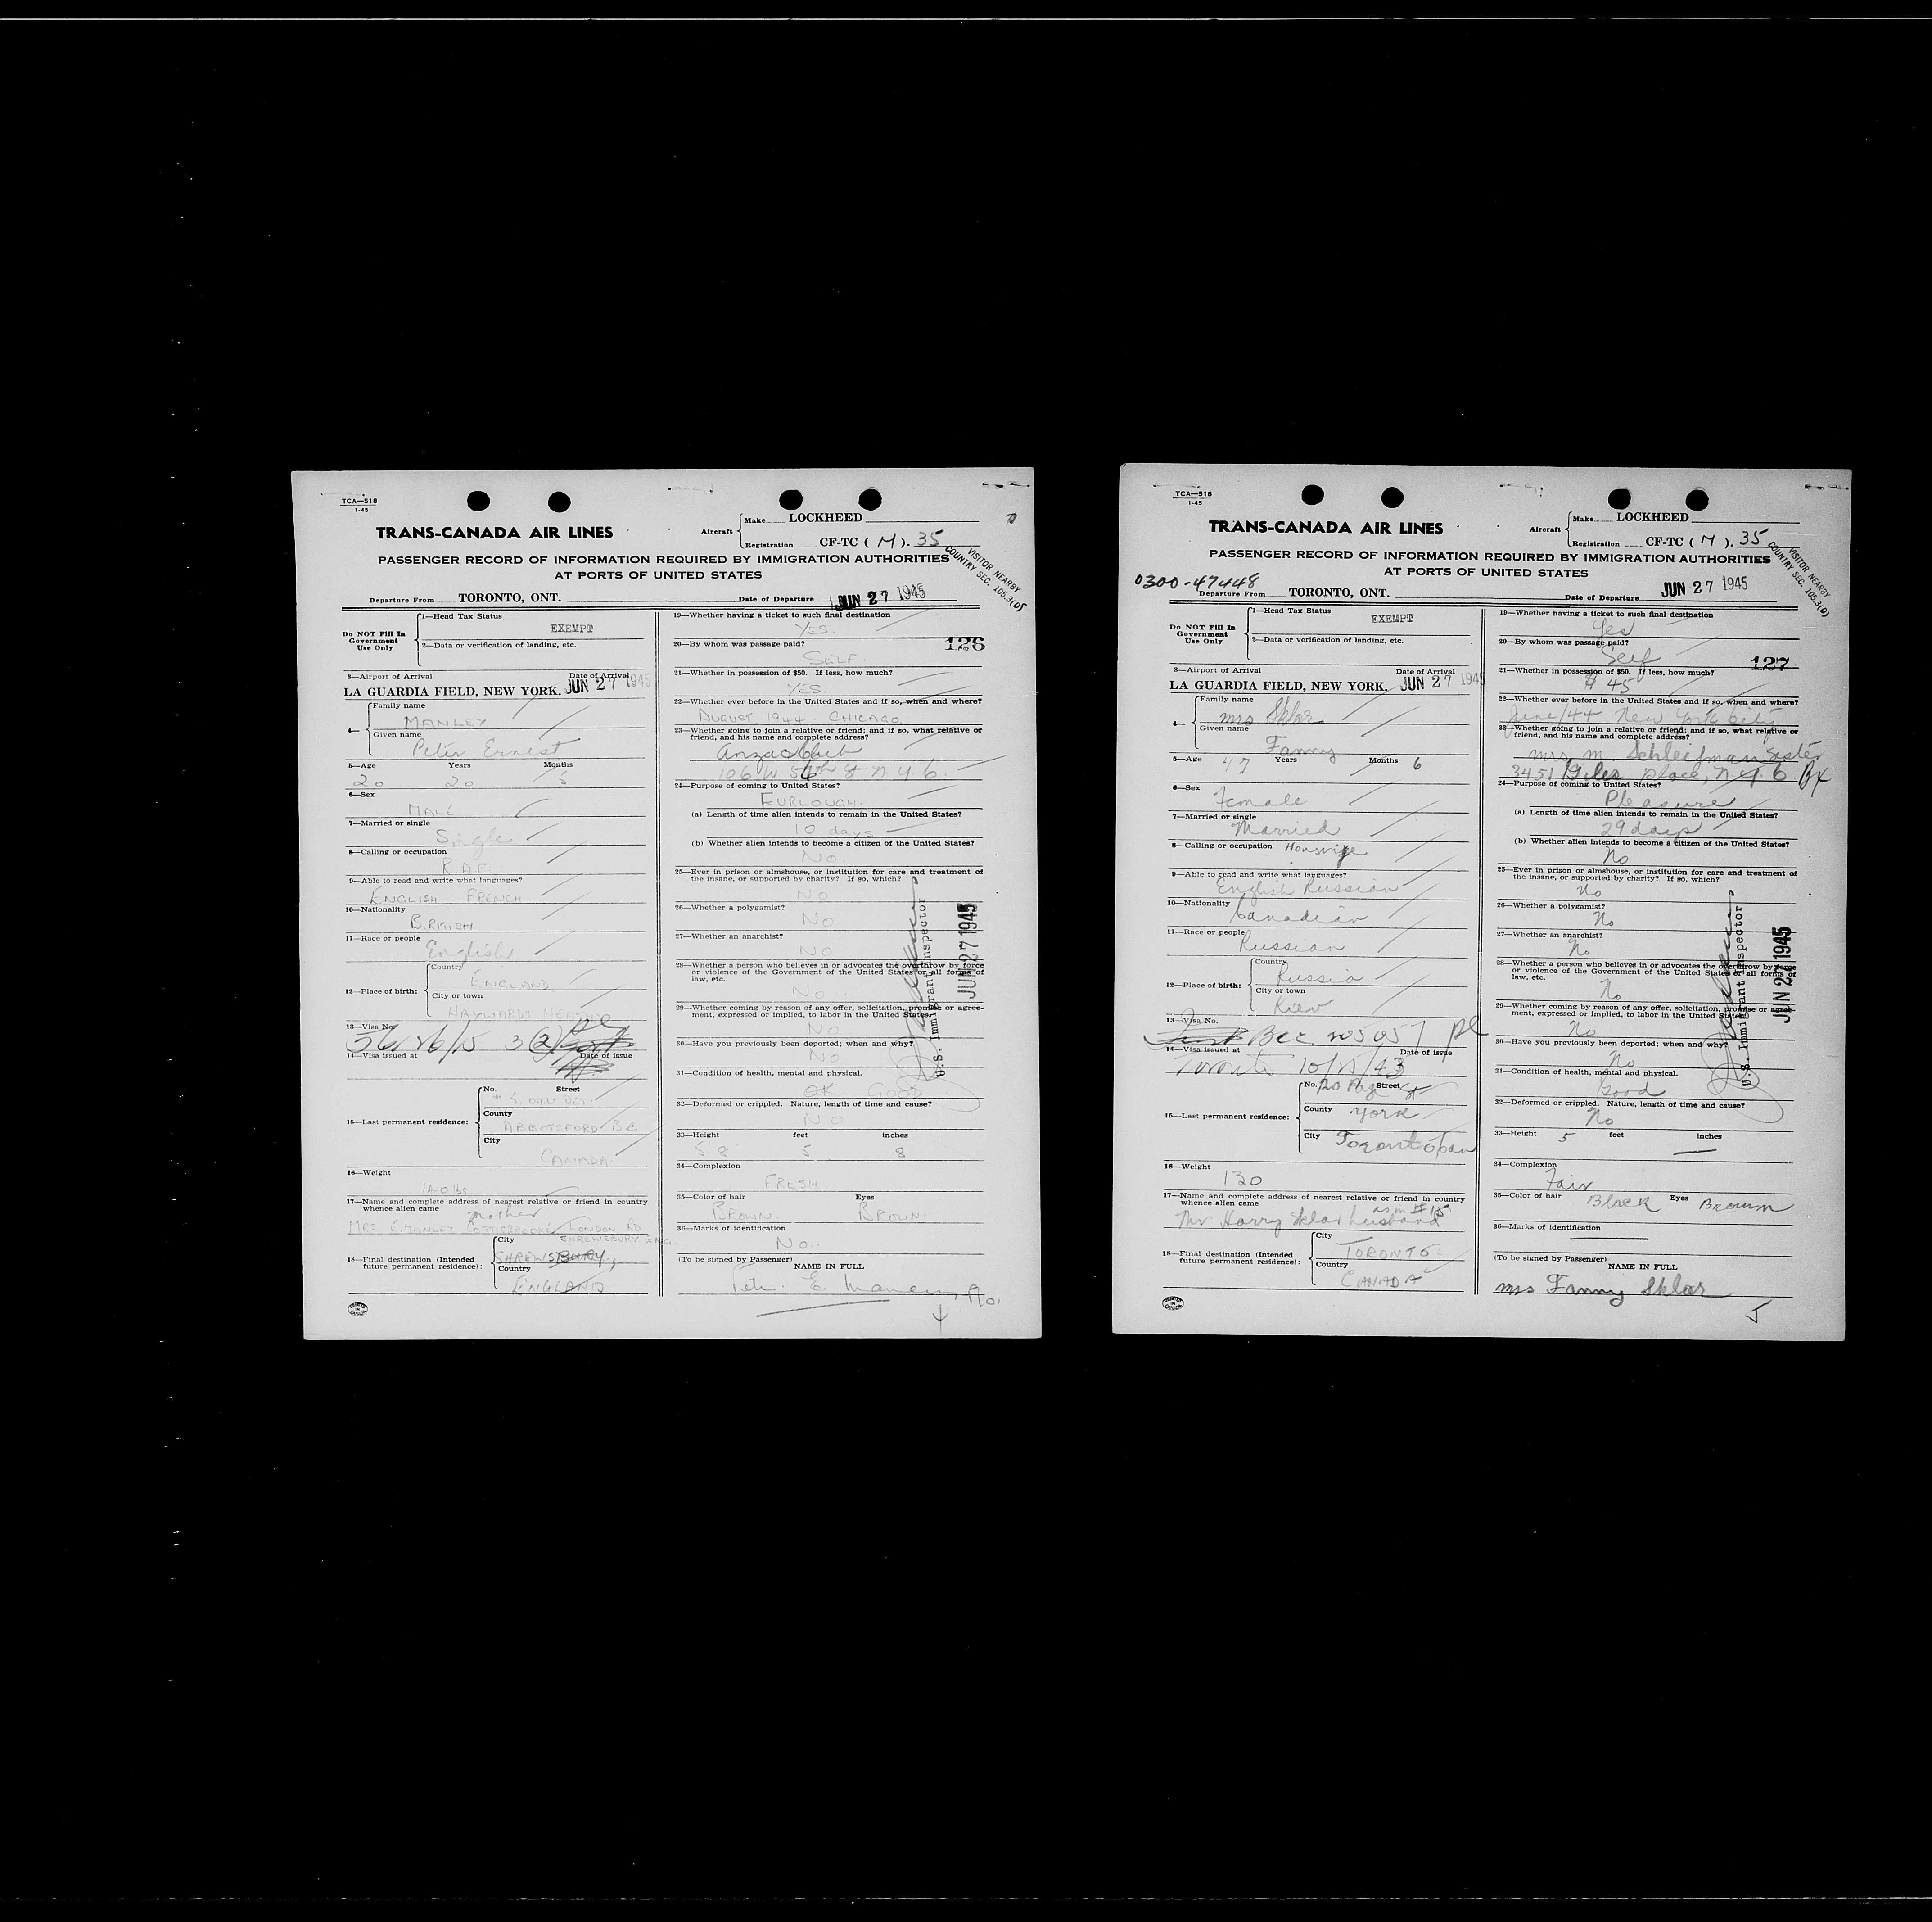 TCA—518
1-45
TRANS-CANADA AIR LINES
Aircraft
Make LOCKHEED
Registration CF-TC ( M ). 35
PASSENGER RECORD OF INFORMATION REQUIRED BY IMMIGRATION AUTHORITIES
AT PORTS OF UNITED STATES
VISITOR NEARBY
COUNTRY SEC. 105.3(0)
Departure From TORONTO, ONT.
Date of Departure JUN 27 1945
Do NOT Fill In
Government
Use Only
1—Head Tax Status
EXEMPT
2—Data or verification of landing, etc.
3—Airport of Arrival Date of Arrival
LA GUARDIA FIELD, NEW YORK. JUN 27 1945
4—
Family name
MANLEY
Given name
Peter Ernest
5—Age Years Months
20 20 5
6—Sex
MALE
7—Married or single
Single
8—Calling or occupation
R.A.F
9—Able to read and write what languages?
ENGLISH FRENCH
10—Nationality
BRITISH
11—Race or people
English
12—Place of birth:
Country
ENGLAND
City or town
HAYWARDS HEATH
13—Visa No.
14—Visa issued at Date of issue
15—Last permanent residence:
No. Street
County
ABBOTSFORD B.C
City
CANADA
16—Weight
140 lbs
17—Name and complete address of nearest relative or friend in country
whence alien came
mother
MRS E. MANLEY LONDON RD
SHREWSBURY ENG.
18—Final destination (Intended
future permanent residence):
City
SHREWSBURY,
Country
ENGLAND
19—Whether having a ticket to such final destination
YES.
20—By whom was passage paid?
SELF.
126
21—Whether in possession of $50. If less, how much?
YES
22—Whether ever before in the United States and if so, when and where?
AUGUST 1944. CHICAGO.
23—Whether going to join a relative or friend; and if so, what relative or
friend, and his name and complete address?
Anzac Club
106 W 56th St N.Y.C.
24—Purpose of coming to United States?
FURLOUGH.
(a) Length of time alien intends to remain in the United States?
10 days
(b) Whether alien intends to become a citizen of the United States?
No.
25—Ever in prison or almshouse, or institution for care and treatment of
the insane, or supported by charity? If so, which?
NO
26—Whether a polygamist?
NO
27—Whether an anarchist?
NO
28—Whether a person who believes in or advocates the overthrow by force
or violence of the Government of the United States or all forms of
law, etc.
NO
29—Whether coming by reason of any offer, solicitation, promise or agree-
ment, expressed or implied, to labor in the United States
NO
30—Have you previously been deported; when and why?
NO
31—Condition of health, mental and physical.
OK GOOD
32—Deformed or crippled. Nature, length of time and cause?
NO
33—Height feet inches
5.8 5 8
34—Complexion
FRESH
35—Color of hair Eyes
BROWN. BROWN.
36—Marks of identification
No.
(To be signed by Passenger)
NAME IN FULL
Peter E. Manley
U.S. Immigrant Inspector
JUN 27 1945
TCA—518
1-45
TRANS-CANADA AIR LINES
Aircraft
Make LOCKHEED
Registration CF-TC ( M ). 35
PASSENGER RECORD OF INFORMATION REQUIRED BY IMMIGRATION AUTHORITIES
AT PORTS OF UNITED STATES
VISITOR NEARBY
COUNTRY SEC. 105.3(0)
0300-47448
Departure From TORONTO, ONT.
Date of Departure JUN 27 1945
Do NOT Fill In
Government
Use Only
1—Head Tax Status
EXEMPT
2—Data or verification of landing, etc.
3—Airport of Arrival Date of Arrival
LA GUARDIA FIELD, NEW YORK. JUN 27 1945
4—
Family name
mrs Sklar
Given name
Fanny
5—Age 47 Years Months 6
6—Sex
Female
7—Married or single
Married
8—Calling or occupation Housvife
9—Able to read and write what languages?
English Russian
10—Nationality
Canadian
11—Race or people
Russian
12—Place of birth:
Country
Russia
City or town
Kiev
13—Visa No.
14—Visa issued at Date of issue
Toronto
15—Last permanent residence:
No. Street
County York
City Toronto
16—Weight
130
17—Name and complete address of nearest relative or friend in country
whence alien came
as in #15
Mr Harry Sklar husband
18—Final destination (Intended
future permanent residence):
City
TORONTO
Country
CANADA
19—Whether having a ticket to such final destination
Yes
20—By whom was passage paid?
Self
127
21—Whether in possession of $50. If less, how much?
$ 45
22—Whether ever before in the United States and if so, when and where?
June/44 New York City
23—Whether going to join a relative or friend; and if so, what relative or
friend, and his name and complete address?
mrs m Schleifman Sister
3451 Giles Place, N.Y.C. Bx
24—Purpose of coming to United States?
Pleasure
(a) Length of time alien intends to remain in the United States?
29 days
(b) Whether alien intends to become a citizen of the United States?
No
25—Ever in prison or almshouse, or institution for care and treatment of
the insane, or supported by charity? If so, which?
No
26—Whether a polygamist?
No
27—Whether an anarchist?
No
28—Whether a person who believes in or advocates the overthrow by force
or violence of the Government of the United States or all forms of
law, etc.
No
29—Whether coming by reason of any offer, solicitation, promise or agree-
ment, expressed or implied, to labor in the United States
No
30—Have you previously been deported; when and why?
No
31—Condition of health, mental and physical.
Good
32—Deformed or crippled. Nature, length of time and cause?
No
33—Height 5 feet inches
34—Complexion
Fair
35—Color of hair Black Eyes Brown
36—Marks of identification
(To be signed by Passenger)
NAME IN FULL
mrs Fanny Sklar
U.S. Immigrant Inspector
JUN 27 1945